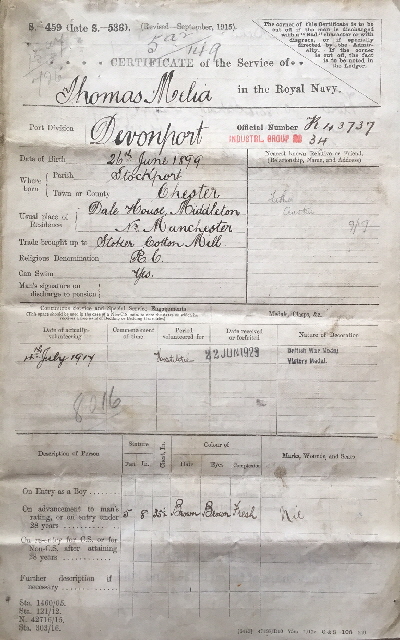 S.—459 (late S.—536). (Revised—September, 1915).
The corner of this Certificate is to be
cut off if the man is discharged
with a "Bad" character or with
disgrace, or if specially
directed by the Admir-
alty. If the corner
is cut off, the fact
is to be noted in
the Ledger.
CERTIFICATE of the Service of
Thomas Melia in the Royal Navy.
Port Division Devonport Official Number K 43737
INDUSTRIAL GROUP 34
Date of Birth 26th June 1899
Nearest known Relative or Friend.
(Relationship, Name, and Address)
Where born Parish Stockport
Town or County Chester
Usual place of Residence Dale House, Middleton
Nr Manchester
Trade brought up to Stoker Cotton Mill
Religious Denomination R.C.
Can Swim Yes.
Man's signature on
discharge to pension
Medals, Clasps, &c.
Date of actually
volunteering
Commencement
of time
Period
volunteered for
Date received
or forfeited
Nature of Decoration
July 1917 22 JUN 1923 British War Medal
Victory Medal.
8216
Description of Person Stature Colour of Marks, Wounds, and Scars
Feet In. Chest, In. Hair Eyes Complexion
On Entry as a Boy
On advancement to man's
rating, or on entry under
28 years 5 8 Brown Brown Fresh Nil
On re-entry for C.S. or for
Non-C.S. after attaining
28 years
Further description if
necessary
Sta. 1460/05.
Sta. 121/12.
N. 42716/15.
Sta. 303/16.